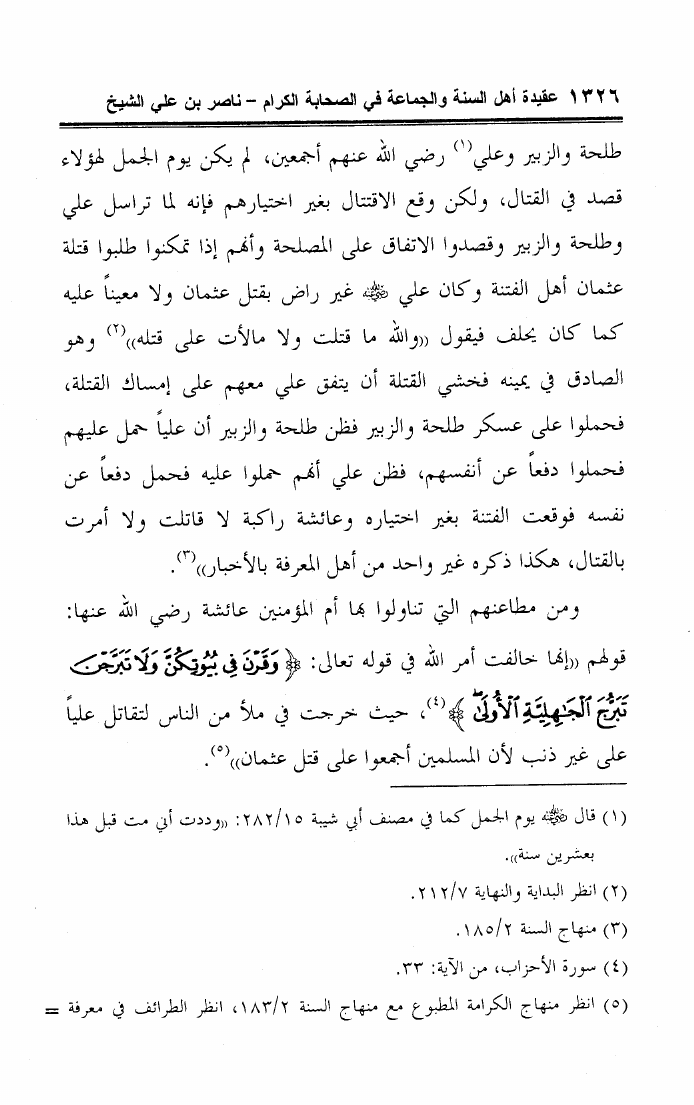 ١٣٢٦ عقيدة أهل السنة والجماعة في الصحابة الكرام – ناصر بن علي الشيخ
طلحة والزبير وعلي(١) رضي الله عنهم أجمعين، لم يكن يوم الجمل لهؤلاء
قصد في القتال، ولكن وقع الاقتتال بغير اختيارهم فإنه لما تراسل علي
وطلحة والزبير وقصدوا الاتفاق على المصلحة وأنهم إذا تمكنوا طلبوا قتلة
عثمان أهل الفتنة وكان علي ﷺ غير راض بقتل عثمان ولا معيناً عليه
كما كان يحلف فيقول ((والله ما قتلت ولا مالأت على قتله))(٢) وهو
الصادق في يمينه فخشي القتلة أن يتفق علي معهم على إمساك القتلة،
فحملوا على عسكر طلحة والزبير فظن طلحة والزبير أن علياً حمل عليهم
فحملوا دفعاً عن أنفسهم، فظن علي أنهم حملوا عليه فحمل دفعاً عن
نفسه فوقعت الفتنة بغير اختياره وعائشة راكبة لا قاتلت ولا أمرت
بالقتال، هكذا ذكره غير واحد من أهل المعرفة بالأخبار))(٣).
ومن مطاعنهم التي تناولوا بها أم المؤمنين عائشة رضي الله عنها:
قولهم ((إنها خالفت أمر الله في قوله تعالى: ﴿وَقَرْنَ فِي بُيُوتِكُنَّ وَلَا تَبَرَّجْنَ
تَبَرُّجَ ٱلْجَٰهِلِيَّةِ ٱلْأُولَىٰ﴾(٤)، حيث خرجت في ملأ من الناس لتقاتل علياً
على غير ذنب لأن المسلمين أجمعوا على قتل عثمان))(٥).
(١) قال ﷺ يوم الجمل كما في مصنف أبي شيبة ٢٨٢/١٥: ((وددت أني مت قبل هذا
بعشرين سنة)).
(٢) انظر البداية والنهاية ٢١٢/٧.
(٣) منهاج السنة ١٨٥/٢.
(٤) سورة الأحزاب، من الآية: ٣٣.
(٥) انظر منهاج الكرامة المطبوع مع منهاج السنة ١٨٣/٢، انظر الطرائف في معرفة =